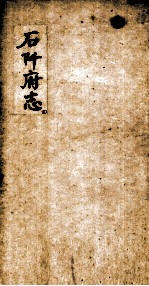 石阡府志